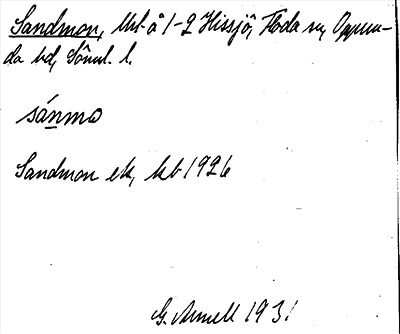 Sandmon, lht å 1-2 Hissjö, Floda sn, Oppun-
da hd, Söml. l.
sánmo
Sandmon ek, kb 1926
G. Arnell 1931